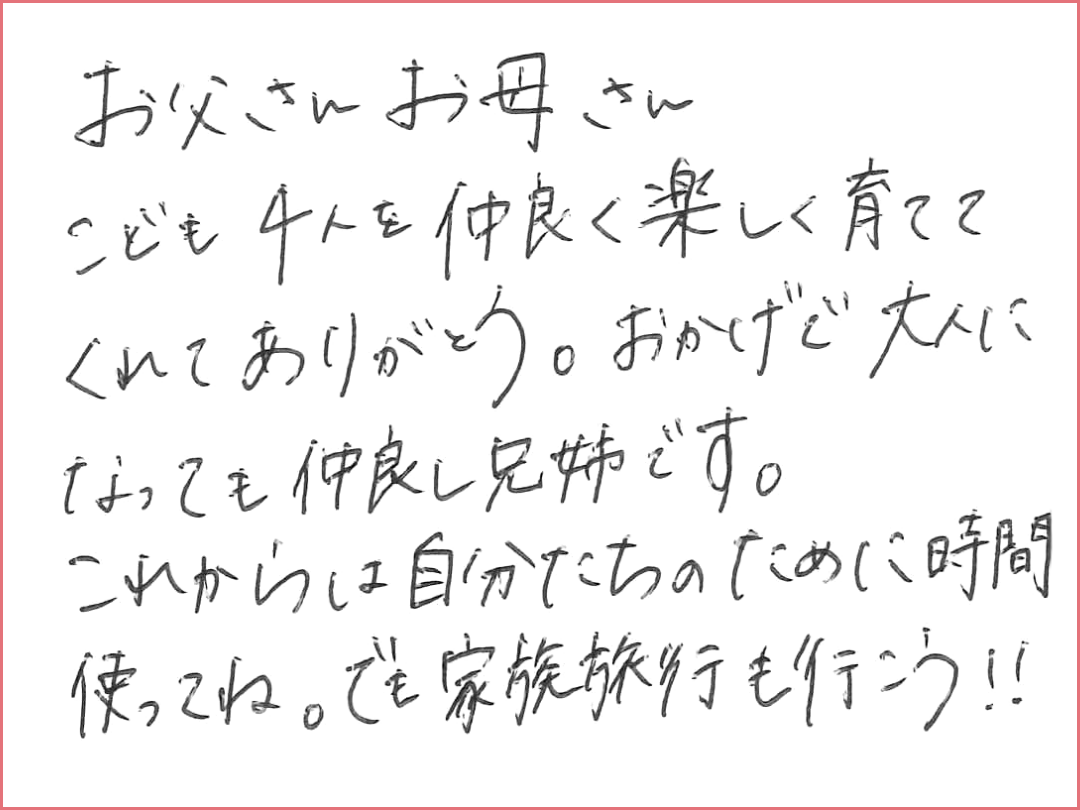 お父さんお母さん
こども4人を仲良く楽しく育てて
くれてありがとう。おかげで大人に
なっても仲良し兄姉です。
これからは自分たちのために時間
使ってね。でも家族旅行も行こう!!